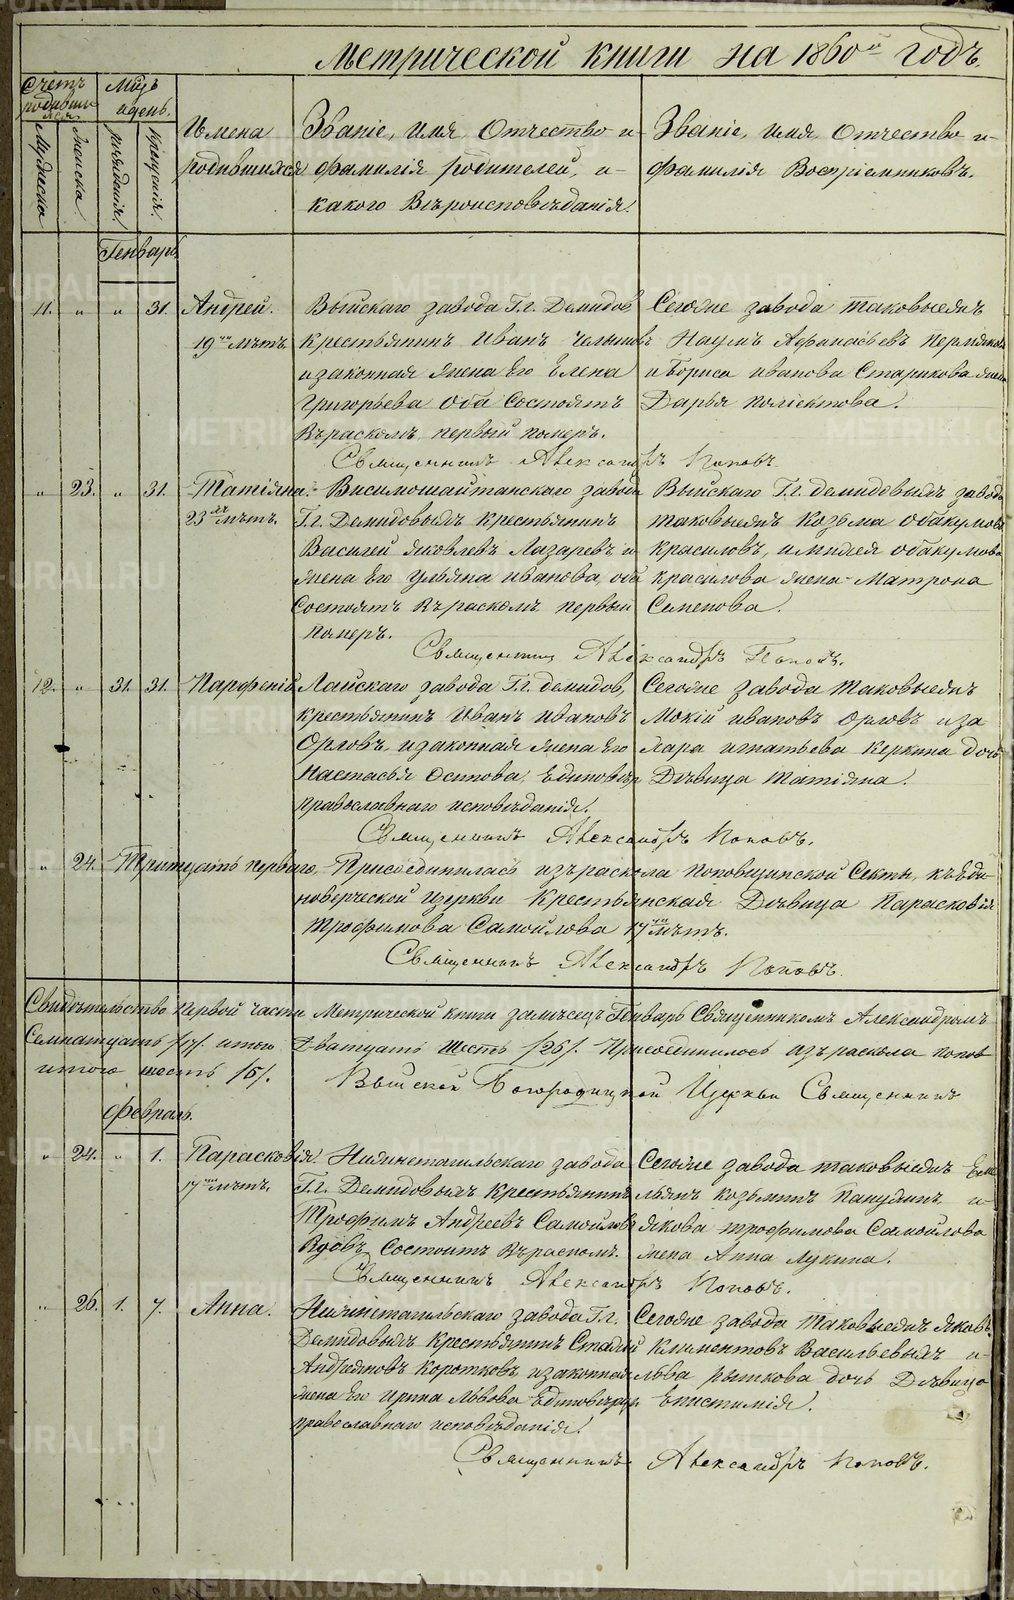 Метрической книги на 1860й годъ.
Счетъ родившихся
Мцъ и день.
Мужеска
Женска
рожденія.
крещенія.
Имена родившихся
Званіе, имя, Отчество и фамилія родителей, и какого Вѣроисповѣданія.
Званіе, имя, Отчество и фамилія Воспріемниковъ.
Генварь
11. " " 31. Андрей. Выйскаго завода Гг. Демидов Сегоже завода таковыежъ
19ти лѣтъ. крестьянинъ Иванъ Наумъ Афанасьевъ
и законная жена Его Елена и Бориса Иванова Старикова жена
Григорьева Оба Состоятъ Дарья Поліектова.
Въ расколѣ, первый номеръ.
Священникъ Александръ Поповъ.
" 23. " 31. Татіяна. Висимошайтанскаго завода Выйскаго Гг. Демидовыхъ завода
23 лѣтъ. Гг. Демидовыхъ крестьянинъ таковыежъ Козьма Обакумовъ
Василей Яковлевъ Лазаревъ и Красиловъ, и Обакумова
жена Его Ульяна Иванова, оба Красилова жена Матрона
Состоятъ Въ расколѣ первый Семенова.
номеръ.
Священникъ Александръ Поповъ.
12. " 31. 31. Парфеній. Лайскаго завода Гг. Демидов, Сегоже завода таковыежъ
крестьянинъ Иванъ Ивановъ Мокій Ивановъ Орловъ и за
Орловъ, и законная жена Его Игнатьева дочь
Настасья Осипова, Единовѣр Дѣвица Татіяна.
православнаго исповѣданія.
Священникъ Александръ Поповъ.
" 24. Тритцать перваго, Присоединилась изъ раскола Поповщинской Секты, къ Еди-
новерческой Церкви Крестьянская Дѣвица Парасковія
Трофимова Самойлова 17ти лѣтъ.
Священникъ Александръ Поповъ.
Свидѣтельство первой части Метрической книги за мѣсецъ Генварь Священникомъ Александромъ
Семнатцать /17/. итого Дватцать Шесть /26/. Присоединилось изъ раскола попов
итого шесть /6/. Выйской Богородицкой Церкви Священникъ
Февраль.
" 24. " 1. Парасковія. Нижнетагильскаго завода Сегоже завода таковыежъ Еме
17ти лѣтъ. Гг. Демидовыхъ крестьянинъ льянъ Козьминъ и
Трофимъ Андреевъ Самойловъ Якова Трофимова Самойлова
Вдовъ, Состоитъ Въ расколѣ. жена Анна Лукина.
Священникъ Александръ Поповъ.
" 26. 1. 7. Анна. Нижнетагильскаго завода Гг. Сегоже завода таковыежъ Яковъ
Демидовыхъ крестьянинъ Климентовъ Васильевыхъ и
Андріяновъ Коротковъ, и законная Льва Рыткова дочь Дѣвица
жена Его Ирина Львова Единовѣр Епистимія.
православнаго исповѣданія.
Священникъ Александръ Поповъ.
METRIKI.GASO-URAL.RU